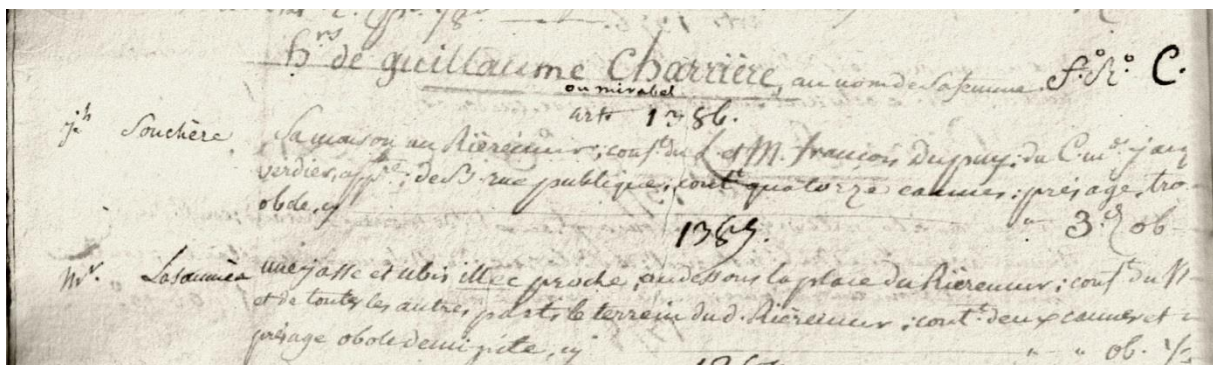 h.rs de guillaume Charrière, au nom de sa femme. f.o R.o C.
ou mirabel
art. 1386.
j.h Souchère. Sa maison au Rièremur; conf.t du L. et M. françois Dupuy; du C. m.e jacq
verdier, app.re; de B. rue publique; cont.t quatorze cannes; présage, tro-
obde, cy " 3.d ob-
1387.
M.r Lasaumèa une jasse et ubis illec proche, au dessous la place du Rièremur; conf.t du
et de toutes les autres parts le terrein dud. Rièremur; cont.t deux cannes et
présage obole demi pite, cy " " ob. 1/2